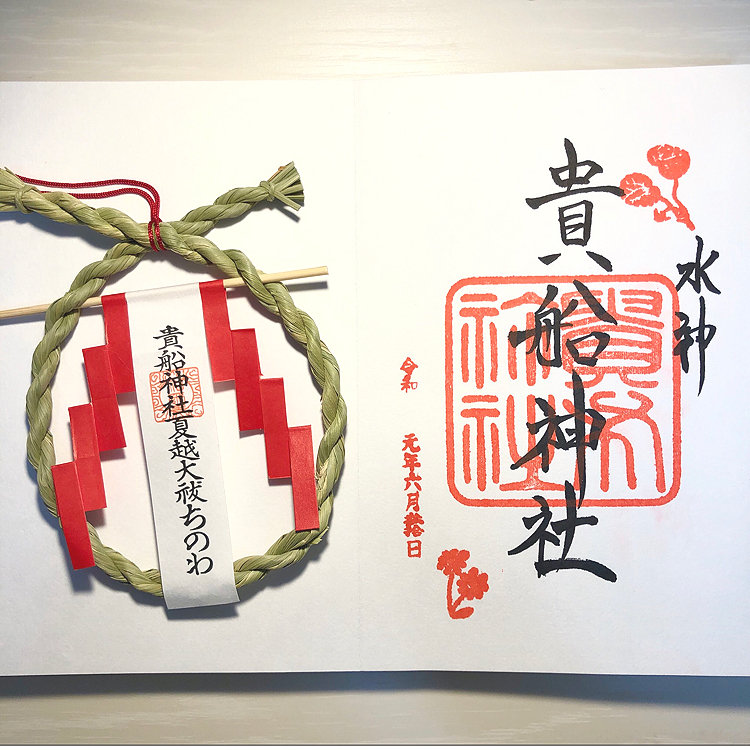 水神
貴船神社
貴船
神社
令和 元年六月 日
貴船神社夏越大祓ちのわ